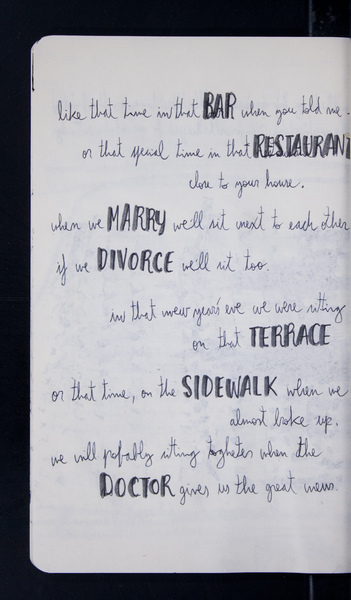 like that time in that BAR when you told me.
or that special time in that RESTAURANT
close to your house.
when we MARRY we'll sit next to each other
if we DIVORCE we'll sit too.
in that new year's eve we were sitting
on that TERRACE
or that time, on the SIDEWALK when we
almost broke up.
we will pofably sitting togheter when the
DOCTOR gives us the great news.